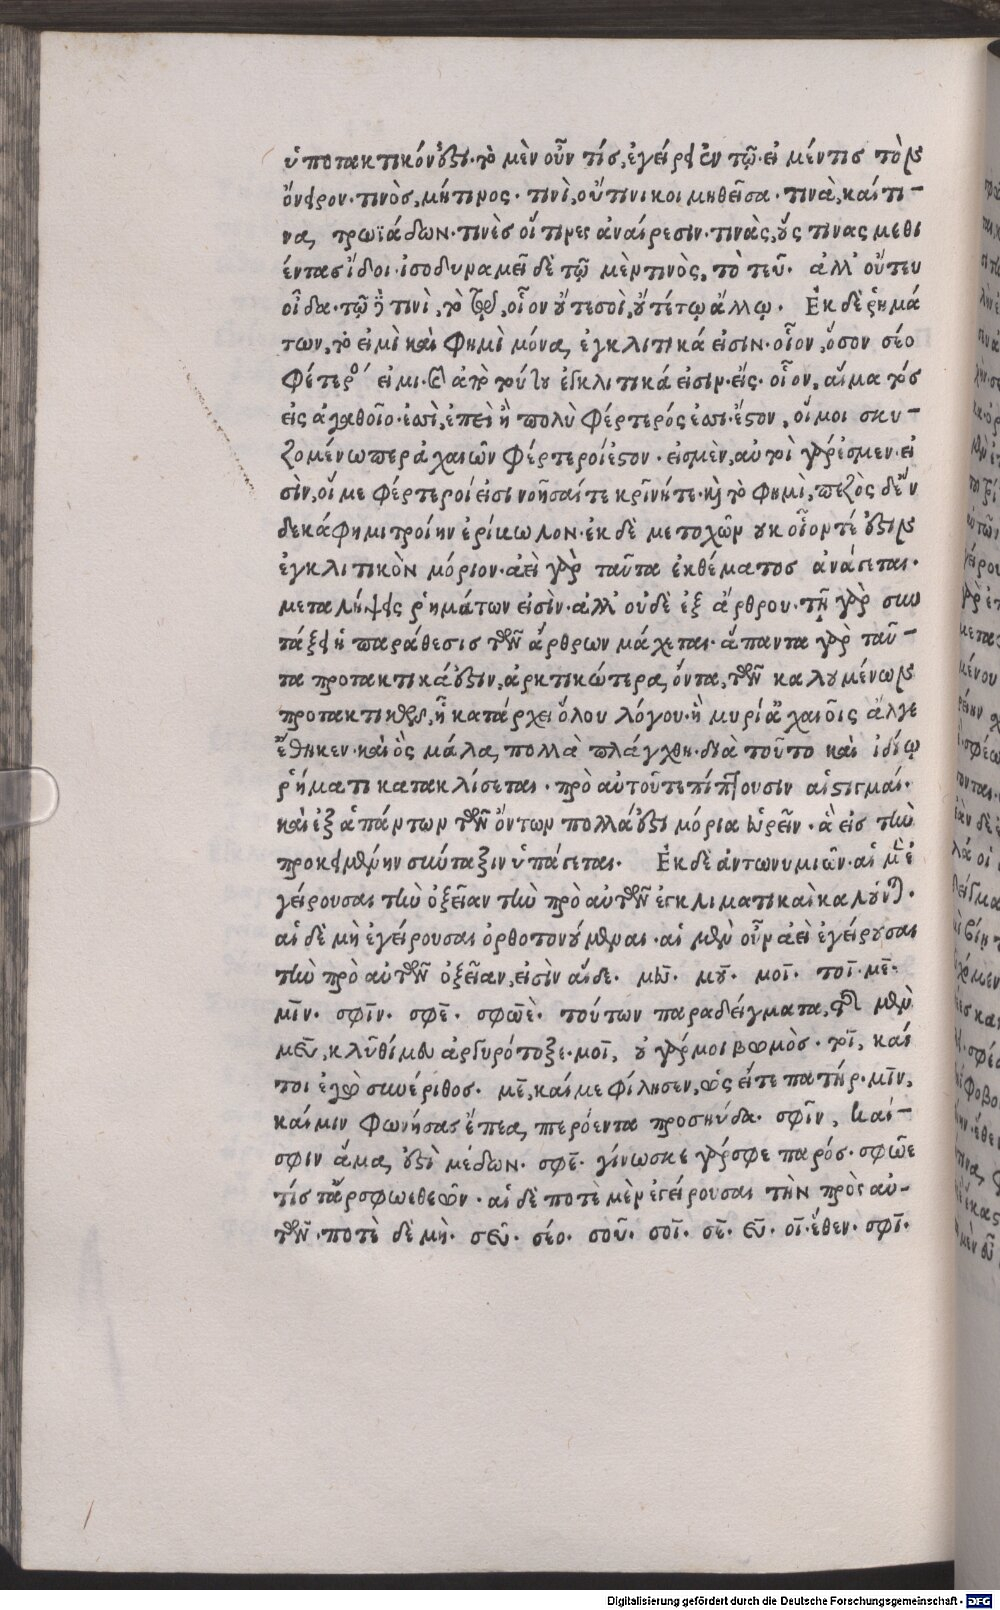 ὑποτακτικόν ἐστι· τὸ μὲν οὖν τίς, ἐγείρει ἐν τῷ· εἰ μέντις τὸν
ὄνειρον· τινὸς, μήτινος· τινὶ, οὔτινι κοιμηθεῖσα· τινὰ, καί τι-
να, τρωϊάδων· τινὲς οἵ τινες ἀναίρεσιν· τινὰς, ὅς τινας μεθι
έντας ἴδοι· ἰσοδυναμεῖ δὲ τῷ μὲν τινὸς, τὸ τεῦ· ἀλλ' οὔτευ
οἶδα· τῷ ἢ τινὶ, τὸ τῳ, οἷον οὔτε σοὶ, οὔτέ τῳ ἄλλῳ· Ἐκ δὲ ῥημά
των, τὸ εἰμὶ καὶ φημὶ μόνα, ἐγκλιτικά εἰσιν· οἷον, ὅσον σέο
φέτερός εἰμι· καὶ ἀπὸ τούτου ἐγκλιτικά εἰσιν· εἴς· οἷον, αἵματός
εἰς ἀγαθοῖο· ἐστὶ, ἐπεὶ ἢ πολὺ φέρτερός ἐστι· ἔστον, οἵ μοι σκυ-
ζομένω περ ἀχαιῶν φέρτεροί ἐστον· εἰσμὲν, αὐτοὶ γάρ ἐσμεν· εἰ
σὶν, οἵ με φέρτεροί εἰσι νοῆσαί τε κρῖνήτε· καὶ τὸ φημὶ, πεζὸς δ' ἕν
δεκά φημι τροίην ἐρίβωλον· ἐκ δὲ μετοχῶν οὐκ οἷόν τέ ἐστιν
ἐγκλιτικὸν μόριον· ἀεὶ γὰρ ταῦτα ἐκ θέματος ἀνάγεται·
μεταλήψεις ῥημάτων εἰσὶν· ἀλλ' οὐδὲ ἐξ ἄρθρου· τῇ γὰρ συν
τάξει ἡ παράθεσις τῶν ἄρθρων μάχεται· ἅπαντα γὰρ ταῦ-
τα προτακτικά ἐστιν, ἀρκτικώτερα, ὄντα, τῶν καλουμένων
προτακτικῶν, ἢ κατάρχει ὅλου λόγου· ἣ μυρί ἀχαιοῖς ἄλγε
ἔθηκεν· καὶ ὃς μάλα, πολλὰ πλάγχθη· διὰ τοῦτο καὶ ἰδίῳ
ῥήματι κατακλίσεται· πρὸ αὐτοῦ τε πίπτουσιν αἱ στιγμαί·
καὶ ἐξ ἁπάντων τῶν ὄντων πολλά ἐστι μόρια εὑρεῖν· ἃ εἰς τὴν
προκειμένην σύνταξιν ὑπάγεται· Ἐκ δὲ ἀντωνυμιῶν· αἱ μὲν ἐ
γείρουσαι τὴν ὀξεῖαν τὴν πρὸ αὐτῶν ἐγκλιματικαὶ καλοῦνται·
αἱ δὲ μὴ ἐγείρουσαι ὀρθοτονούμεναι· αἱ μὲν οὖν ἀεὶ ἐγείρουσαι
τὴν πρὸ αὐτῶν ὀξεῖαν, εἰσὶν αἵδε· μεῦ· μοῦ· μοῖ· τοῖ· μῆ·
μῖν· σφῖν· σφε· σφῶὲ· τούτων παραδείγματα, τοῦ μὲν
μεῦ, κλῦθί μευ ἀργυρότοξε· μοῖ, οὐ γάρ μοι βωμὸς· τοῖ, καί
τοι ἐγὼ συνέριθος· με, καί με φίλησεν, ὡς εἴτε πατήρ· μῖν,
καί μιν φωνήσας ἔπεα, πτερόεντα προσηύδα· σφῖν, καί-
σφιν ἅμα, ἐστὶ μέδων· σφε· γίνωσκε γάρ σφε παρός· σφῶε
τίς τ' ἄρ σφωε θεῶν· αἱ δὲ ποτὲ μὲν ἐγείρουσαι τὴν πρὸς αὐ-
τῶν· ποτὲ δὲ μὴ· σεῦ· σέο· σοῦ· σοῖ· σε· εὖ· οἷ· ἕθεν· σφῖ·
Digitalisierung gefördert durch die Deutsche Forschungsgemeinschaft · DFG